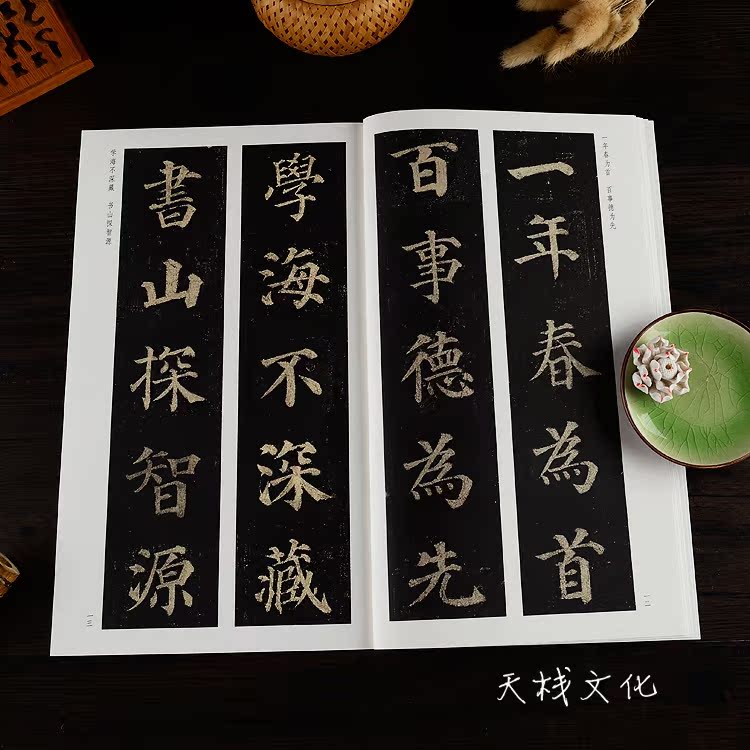 一年春为首 百事德为先
一年春為首
百事德為先
一二
學海不深藏
書山探智源
学海不深藏 书山探智源
一三
天栈文化